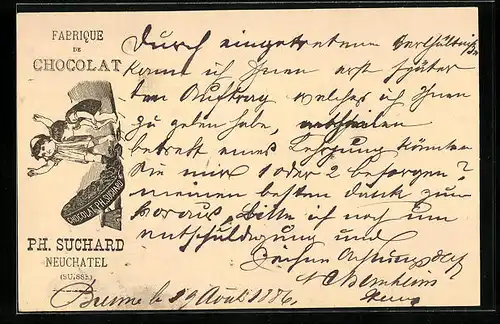 FABRIQUE
DE
CHOCOLAT
CHOCOLAT PH. SUCHARD
PH. SUCHARD
NEUCHATEL
(SUISSE)
Durch eingetretene Verhältnisse
kann ich Ihnen erst später
den Auftrag welches ich Ihnen
zu geben habe, ertheilen
betreff eines Lehrgung könnten
Sie mir 1 oder 2 besorgen?
meinen besten dank zum
voraus, Bitte ich noch um
entschuldigung und
zeichne Achtungsvoll
Bernheim
Brenne le 29 Août 1886.